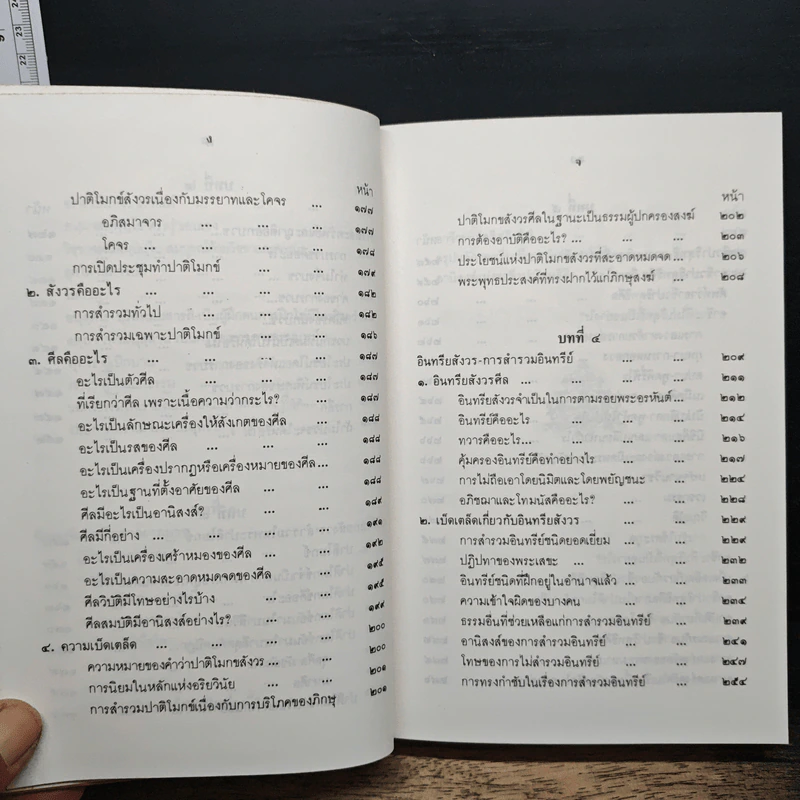 ง
หน้า
ปาติโมกข์สังวรเนื่องกับมรรยาทและโคจร ... ๑๗๗
อภิสมาจาร ... ... ... ๑๗๗
โคจร ... ... ... ... ๑๗๘
การเปิดประชุมทำปาติโมกข์ ... ... ๑๗๙
๒. สังวรคืออะไร ... ... ... ๑๘๒
การสำรวมทั่วไป ... ... ... ๑๘๒
การสำรวมเฉพาะปาติโมกข์ ... ... ๑๘๖
๓. ศีลคืออะไร ... ... ... ๑๘๗
อะไรเป็นตัวศีล ... ... ... ๑๘๗
ที่เรียกว่าศีล เพราะเนื้อความว่ากระไร? ... ๑๘๗
อะไรเป็นลักษณะเครื่องให้สังเกตของศีล ... ๑๘๘
อะไรเป็นรสของศีล ... ... ... ๑๘๘
อะไรเป็นเครื่องปรากฏหรือเครื่องหมายของศีล ... ๑๘๘
อะไรเป็นฐานที่ตั้งอาศัยของศีล ... ... ๑๘๙
ศีลมีอะไรเป็นอานิสงส์? ... ...
ศีลมีกี่อย่าง ... ... ... ๑๙๑
อะไรเป็นเครื่องเศร้าหมองของศีล ... ... ๑๙๒
อะไรเป็นความสะอาดหมดจดของศีล ... ๑๙๕
ศีลวิบัติมีโทษอย่างไรบ้าง ... ... ๑๙๕
ศีลสมบัติมีอานิสงส์อย่างไร? ... ... ๑๙๙
๔. ความเบ็ดเตล็ด ... ... ... ๒๐๐
ความหมายของคำว่าปาติโมกขสังวร ... ... ๒๐๐
การนิยมในหลักแห่งอริยวินัย ... ... ๒๐๑
การสำรวมปาติโมกข์เนื่องกับการบริโภคของภิกษุ ๒๐๑
จ
หน้า
ปาติโมกขสังวรศีลในฐานะเป็นธรรมผู้ปกครองสงฆ์ ๒๐๒
การต้องอาบัติคืออะไร? ... ... ... ๒๐๓
ประโยชน์แห่งปาติโมกขสังวรที่สะอาดหมดจด ... ๒๐๖
พระพุทธประสงค์ที่ทรงฝากไว้แก่ภิกษุสงฆ์ ... ๒๐๘
บทที่ ๔
อินทรียสังวร-การสำรวมอินทรีย์ ... ... ๒๐๙
๑. อินทรียสังวรศีล ... ... ... ... ๒๑๑
อินทรียสังวรจำเป็นในการตามรอยพระอรหันต์ ... ๒๑๒
อินทรีย์คืออะไร ... ... ... ๒๑๔
ทวารคืออะไร ... ... ... ... ๒๑๖
คุ้มครองอินทรีย์คือทำอย่างไร ... ... ๒๑๗
การไม่ถือเอาโดยนิมิตและโดยพยัญชนะ ... ๒๒๔
อภิชฌาและโทมนัสคืออะไร? ... ... ๒๒๘
๒. เบ็ดเตล็ดเกี่ยวกับอินทรียสังวร ... ... ๒๒๙
การสำรวมอินทรีย์ชนิดยอดเยี่ยม ... ... ๒๒๙
ปฏิปทาของพระเสขะ ... ... ... ๒๓๒
อินทรีย์ชนิดที่ฝึกอยู่ในอำนาจแล้ว ... ... ๒๓๓
ความเข้าใจผิดของบางคน ... ... ๒๓๔
ธรรมอื่นที่ช่วยเหลือแก่การสำรวมอินทรีย์ ... ๒๓๙
อานิสงส์ของการสำรวมอินทรีย์ ... ... ๒๔๑
โทษของการไม่สำรวมอินทรีย์ ... ... ๒๔๗
การทรงกำชับในเรื่องการสำรวมอินทรีย์ ... ๒๕๔